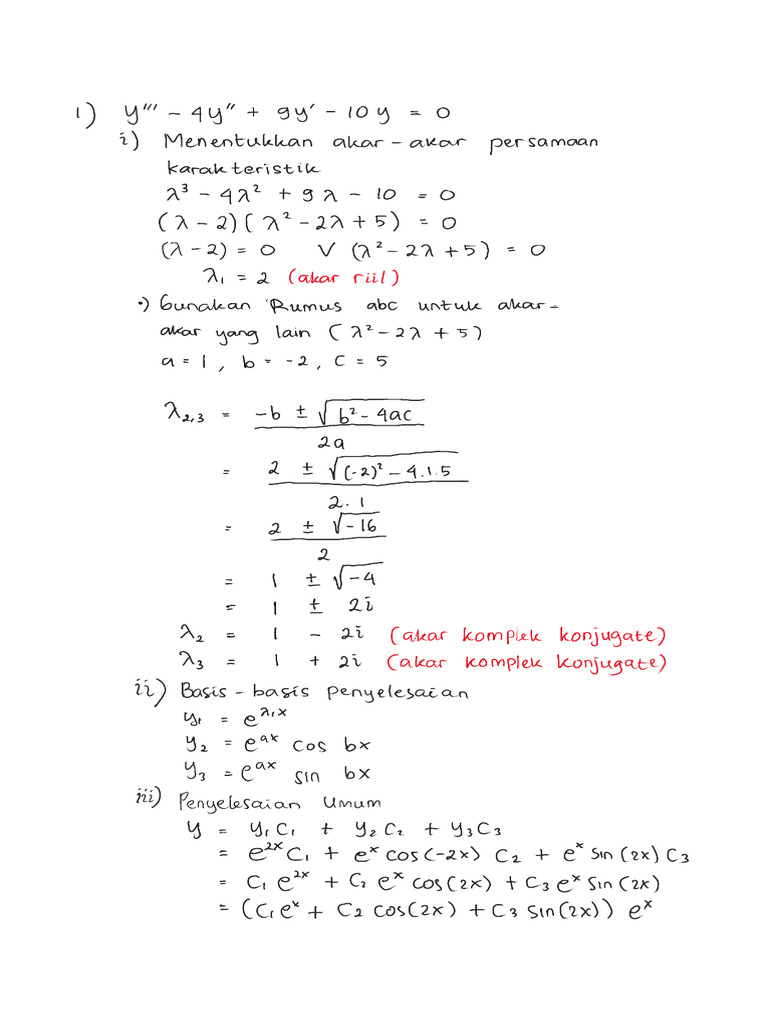 1) y''' - 4y'' + 9y' - 10y = 0
i) Menentukkan akar-akar persamaan
karakteristik
λ³ - 4λ² + 9λ - 10 = 0
(λ - 2)(λ² - 2λ + 5) = 0
(λ - 2) = 0 V (λ² - 2λ + 5) = 0
λ₁ = 2 (akar riil)
•) Gunakan Rumus abc untuk akar-
akar yang lain (λ² - 2λ + 5)
a = 1, b = -2, c = 5
λ₂,₃ = -b ± √b² - 4ac
2a
= 2 ± √(-2)² - 4.1.5
2.1
= 2 ± √-16
2
= 1 ± √-4
= 1 ± 2i
λ₂ = 1 - 2i (akar komplek konjugate)
λ₃ = 1 + 2i (akar komplek konjugate)
ii) Basis-basis penyelesaian
y₁ = e^λ₁x
y₂ = e^ax cos bx
y₃ = e^ax sin bx
iii) Penyelesaian Umum
y = y₁C₁ + y₂C₂ + y₃C₃
= e^2x C₁ + e^x cos(-2x) C₂ + e^x sin(2x) C₃
= C₁ e^2x + C₂ e^x cos(2x) + C₃ e^x sin(2x)
= (C₁e^x + C₂ cos(2x) + C₃ sin(2x)) e^x